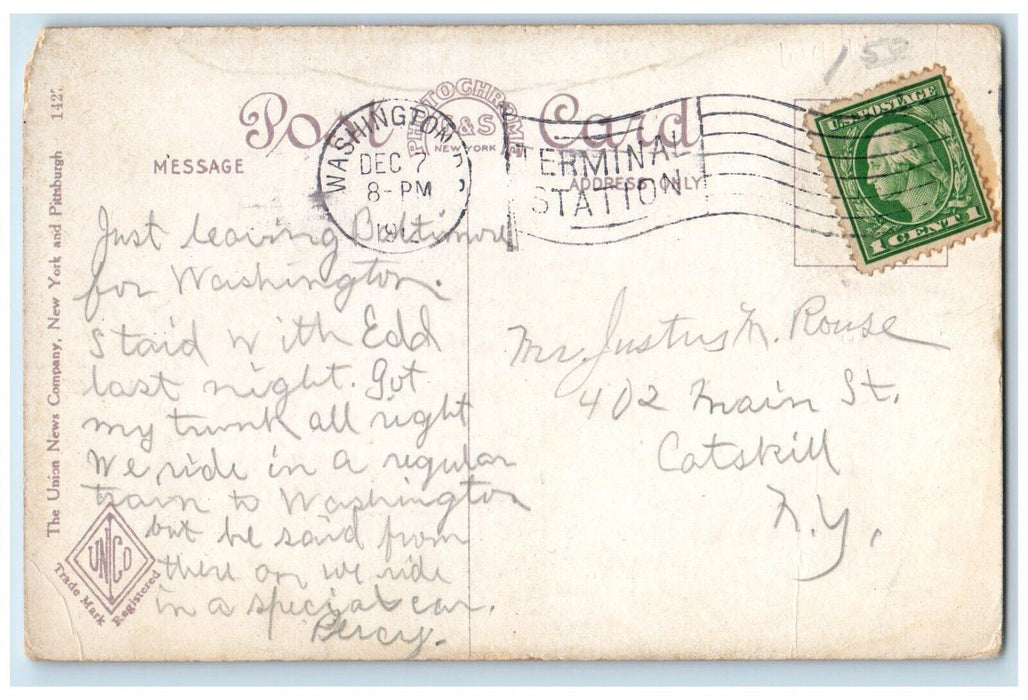 150
Post Card
PHOTOCHROME
&S
NEW YORK
MESSAGE
ADDRESS ONLY
WASHINGTON,
DEC 7
8-PM
1912
TERMINAL
STATION
U.S. POSTAGE
1 CENT 1
The Union News Company, New York and Pittsburgh 1427
UNCO
Trade Mark
Registered
Just leaving Baltimore
for Washington.
Staid with Edd
last night. Got
my trunk all right
We ride in a regular
train to Washington
but he said from
there on we ride
in a special car.
Percy.
Mr. Justus M. Rouse
402 Main St.
Catskill
N.Y.